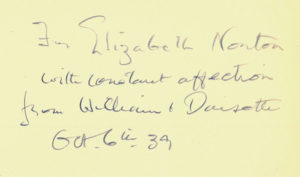 For Elizabeth Norton
with constant affection
from William &
Oct. 6th 39